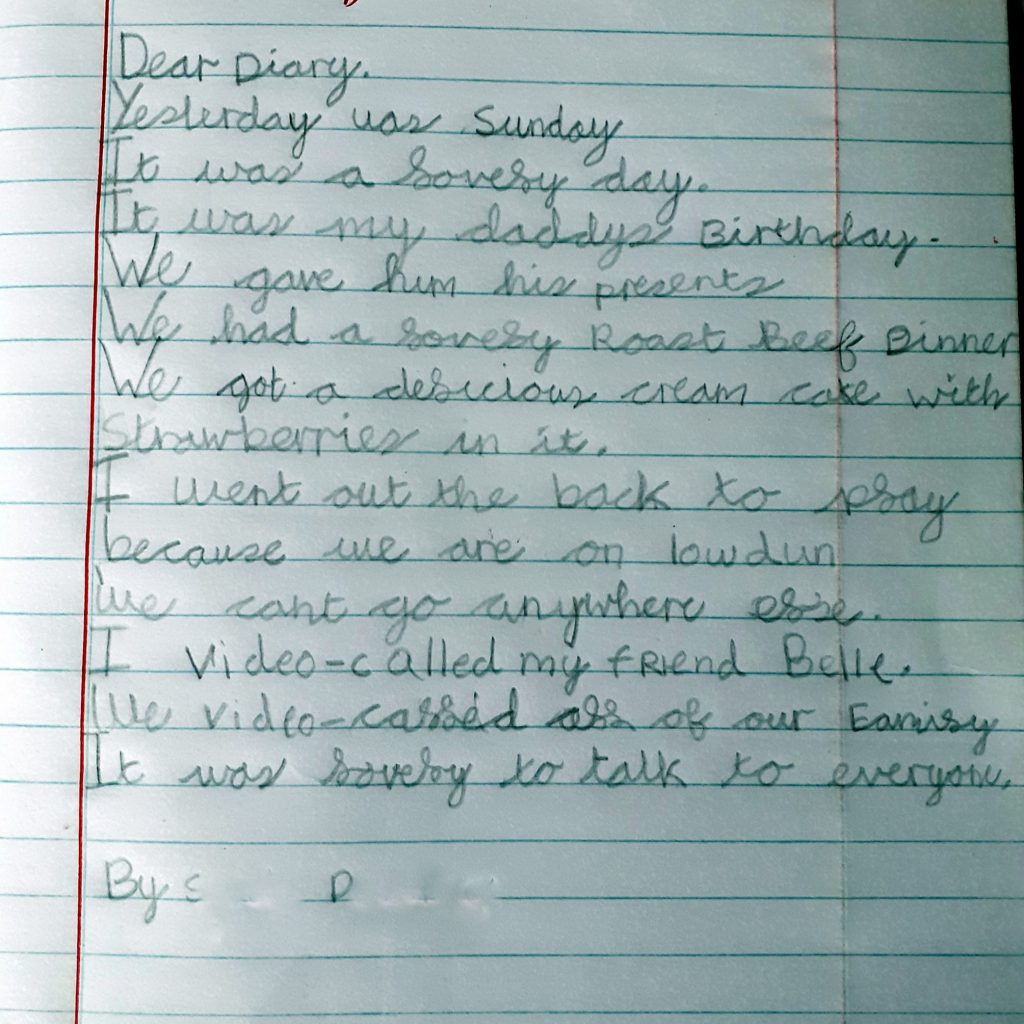 Dear Diary.
Yesterday was Sunday
It was a lovely day.
It was my daddys Birthday.
We gave him his presents
We had a lovely Roast Beef Dinner
We got a delicious cream cake with
Strawberries in it.
I went out the back to play
because we are on lowdun
We cant go anywhere else.
I video-called my friend Belle.
We video-called all of our Family
It was lovely to talk to everyone.
By S D